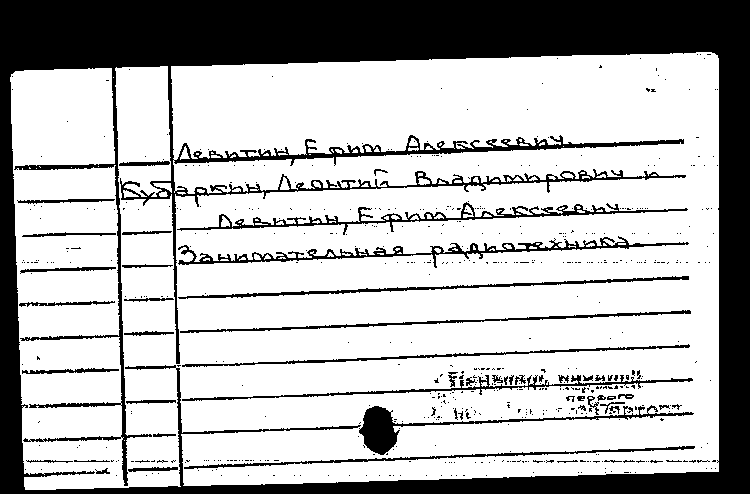 Левитин, Ефим Алексеевич.
Кубаркин, Леонтий Владимирович и
Левитин, Ефим Алексеевич
Занимательная радиотехника.
первого